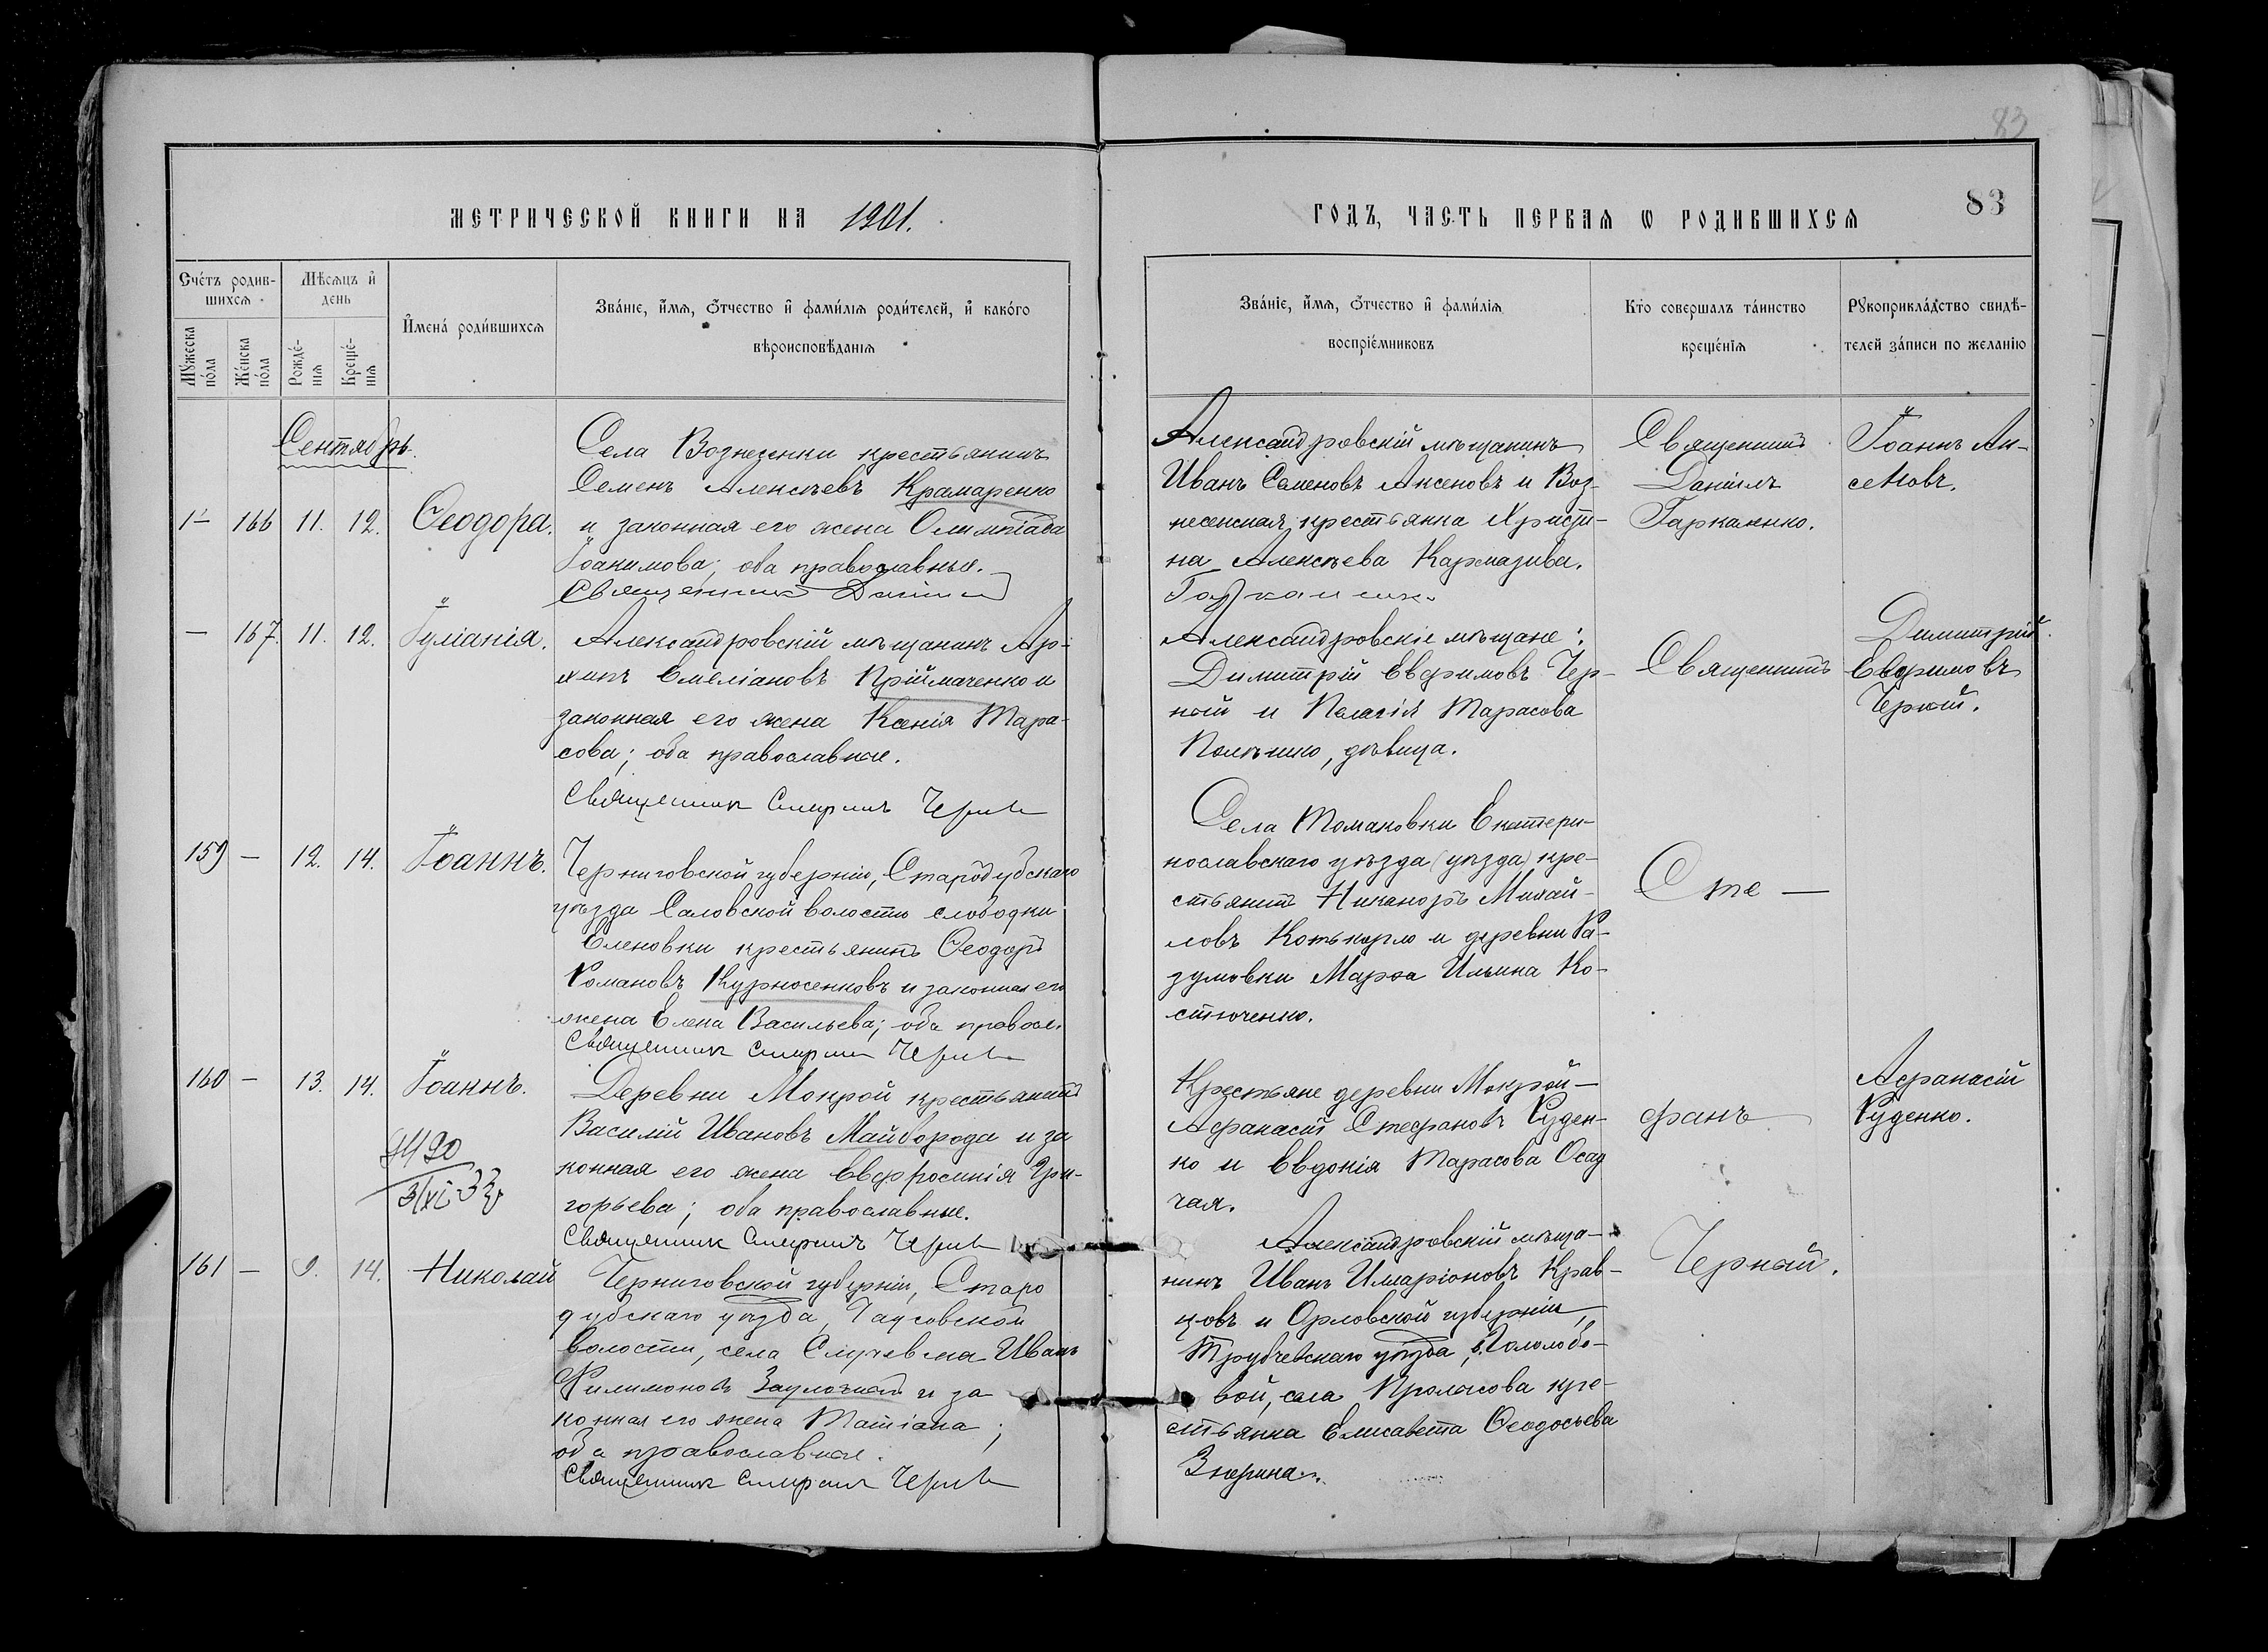 83
МЕТРИЧЕСКОЙ КНИГИ НА 1901.
ГОДЪ, ЧАСТЬ ПЕРВАЯ Ѡ РОДИВШИХСЯ
83
Сче́тъ родив-
шихся
Мѣсяцъ и҆
день
И҆мена́ роди́вшихся
Зва́ніе, и҆́мя, ѻ҆́тчество и҆ фами́лія роди́телей, и҆ како́го
вѣроисповѣ́данія
Мꙋжеска
по́ла
Же́нска
по́ла
Рожде́-
нія
Креще́-
нія
Зва́ніе, и҆́мя, ѻ҆́тчество и҆ фами́лія
воспріе́мниковъ
Кто̀ совершалъ та́инство
креще́нія
Рꙋкоприкла́дство свидѣ́-
телей за́писи по жела́нію
Сентябрь.
166 11. 12. Ѳеодора.
Села Вознесенки крестьянинъ
Семенъ Алексѣевъ Крамаренко
и законная его жена Олимпіада
Іоакимова; оба православные.
Священникъ Даніилъ
Александровскій мѣщанинъ
Иванъ Семеновъ Аксеновъ и Воз-
несенская крестьянка Христи-
на Алексѣева Кармазива.
Гаркаленко
Священникъ
Даніилъ
Гаркаленко.
Іоаннъ Ак-
сеновъ.
— 167. 11. 12. Іуліанія.
Александровскій мѣщанинъ Ар-
хипъ Емеліановъ Пріймаченко и
законная его жена Ксенія Тара-
сова; оба православные.
Священникъ Стефанъ Черный
Александровскіе мѣщане:
Димитрій Евѳимовъ Чер-
ный и Пелагія Тарасова
дѣвица.
Священникъ
Димитрій
Евѳимовъ
Черный.
159 — 12. 14. Іоаннъ.
Черниговской губерніи, Стародубскаго
уѣзда Саловской волости слободки
Еленовки крестьянинъ Ѳеодоръ
Романовъ Курносенковъ и законная его
жена Елена Васильева; оба правосл.
Священникъ Стефанъ Черный
Села Томаковки Екатери-
нославскаго уѣзда (уѣзда) кре-
стьянинъ Никаноръ Михай-
ловъ и деревни Ра-
зумовки Марѳа Ильина Ко-
стюченко.
Сте —
160 — 13. 14. Іоаннъ.
Деревни Мокрой крестьянинъ
Василій Ивановъ Майборода и за
конная его жена Евфросинія Гри-
горьева; оба православные.
Священникъ Стефанъ Черный
Крестьяне деревни Мокрой —
Аѳанасій Стефановъ Руден-
ко и Евдокія Тарасова Осад
чая.
фанъ
Аѳанасій
Руденко.
161 — 9. 14. Николай
Черниговской губерніи, Старо
дубскаго уѣзда,
волости, села Иванъ
Филимоновъ и за
конная его жена Татіана;
оба православные.
Священникъ Стефанъ Черный
Александровскій мѣща-
нинъ Иванъ Илларіоновъ Крав-
цовъ и Орловской губерніи,
Трубчевскаго уѣзда,
села кре-
стьянка Елисавета Ѳеодосьева
Зюрина.
Черный.